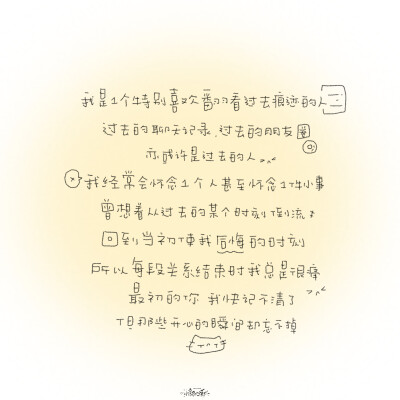 我是1个特别喜欢翻看过去痕迹的人
过去的聊天记录.过去的朋友圈
亦或许是过去的人
我经常会怀念1个人甚至怀念1件小事
曾想着从过去的某个时刻倒流
回到当初使我后悔的时刻
所以每段关系结束时我总是很痛
最初的你 我快记不清了
但那些开心的瞬间却忘不掉